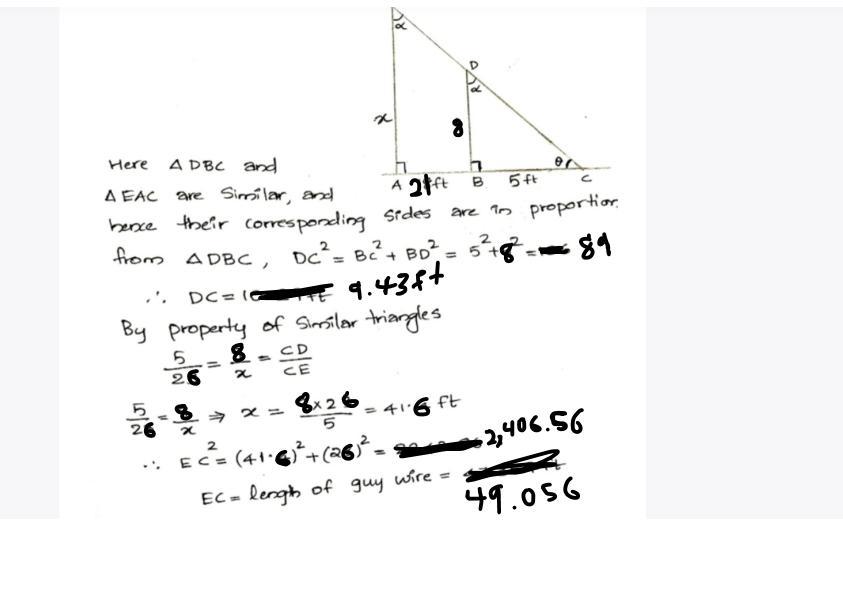 α
D
α
x
8
θ
A 21ft B 5ft C
Here Δ DBC and
Δ EAC are Similar, and
hence their corresponding sides are in proportion.
from Δ DBC, DC² = BC² + BD² = 5² + 8² = 89
∴ DC = 9.43ft
By property of Similar triangles
5/26 = 8/x = CD/CE
5/26 = 8/x ⇒ x = 8×26/5 = 41.6 ft
∴ EC² = (41.6)² + (26)² = 2,406.56
EC = length of guy wire =
49.056